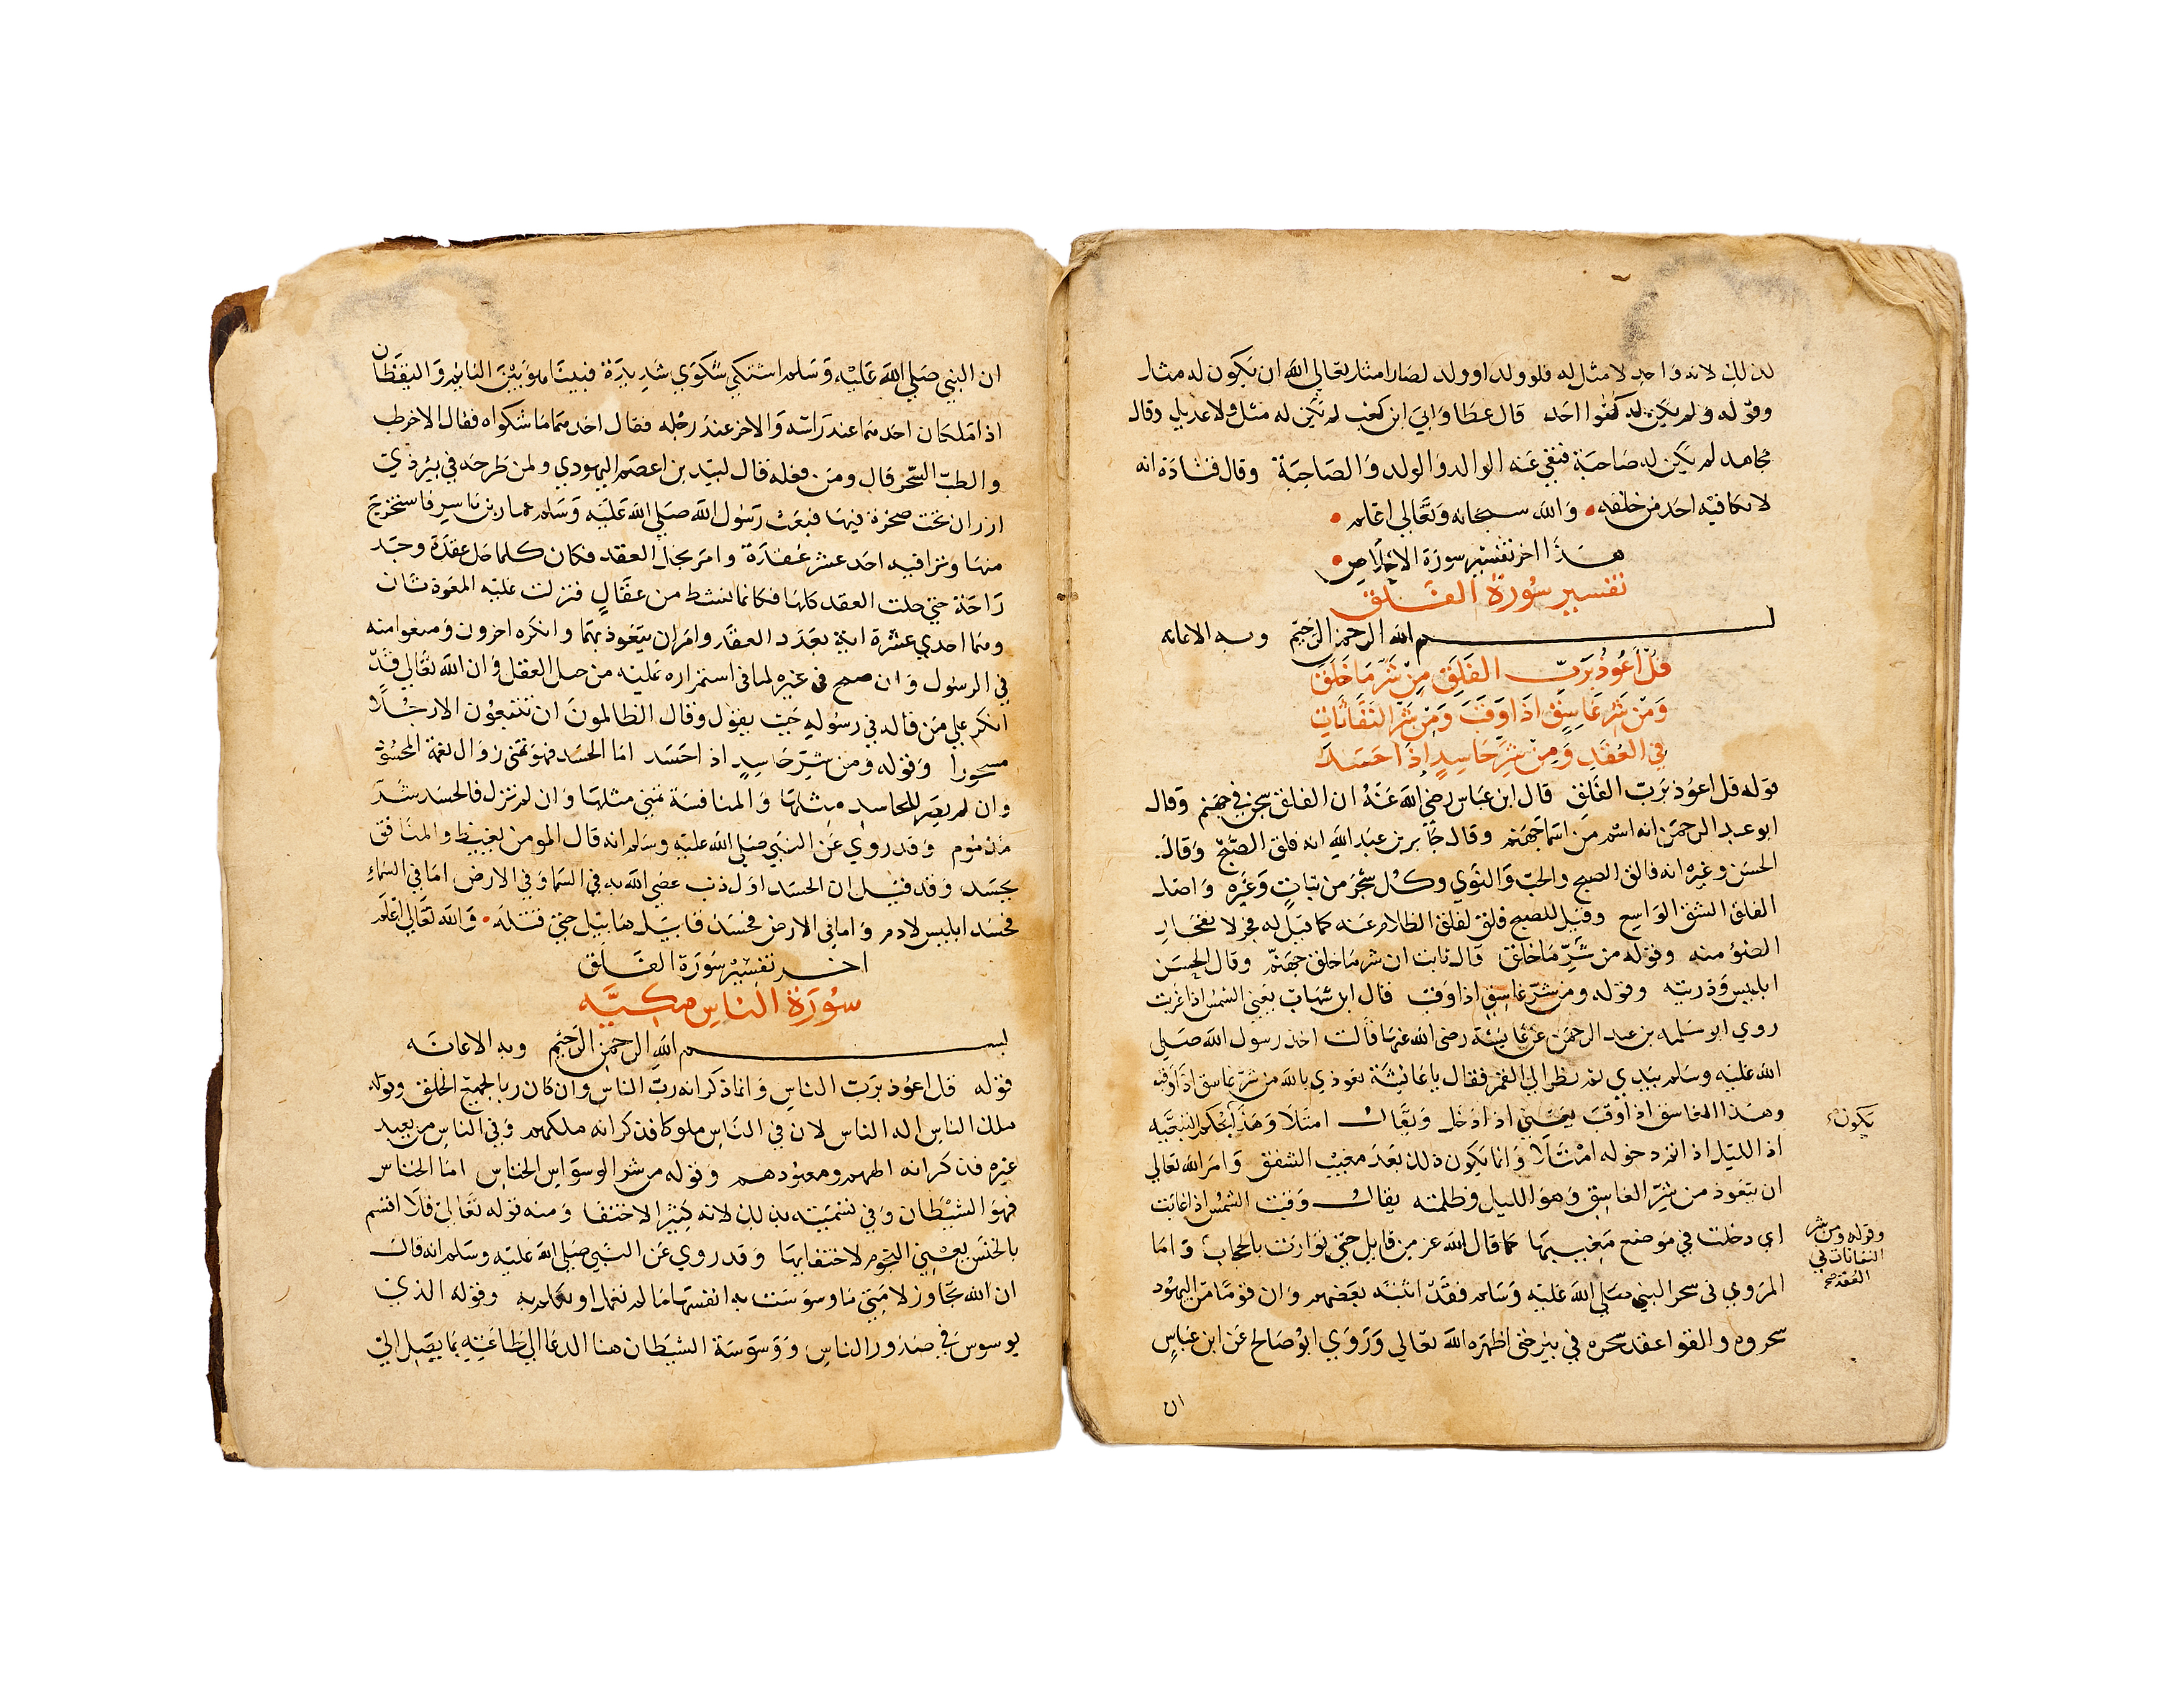 لذلك لانه واحد لا مثل له فلو ولد او ولد لصار امثار تعالي الله ان يكون له مثار
وقوله ولم يكن له كفوا احد قال عطا وابي ابن كعب لم يكن له مثل ولا عديل وقال
مجاهد لم يكن له صاحبة فنفي عنه الوالد والولد والصاحبة وقال قتادة انه
لا يكافيه احد من خلقه والله سبحانه وتعالي اعلم
هذا اخر تفسير سورة الاخلاص
تفسير سورة الفلق
بسم الله الرحمن الرحيم وبه الاعانه
قل أعوذ برب الفلق من شر ما خلق
ومن شر غاسق اذا وقب ومن شر النفاثات
في العقد ومن شر حاسد اذا حسد
قوله قل اعوذ برب الفلق قال ابن عباس رضي الله عنه ان الفلق سجن في جهنم وقال
ابو عبد الرحمن انه اسم من اسما جهنم وقال جابر بن عبد الله انه فلق الصبح وقال
الحسن وغيره انه فالق الصبح والحب والنوي وكل شجر من نبات وغيره واصل
الفلق الشق الواسع وقيل للصبح فلق لفلق الظلام عنه كما قيل له فجر لانفجار
الضؤ منه وقوله من شر ما خلق قال ثابت ان شر ما خلق جهنم وقال الحسن
ابليس وذريته وقوله ومن شر غاسق اذا وقب قال ابن شهاب يعني الشمس اذا غربت
روي ابو سلمه بن عبد الرحمن عن عايشة رضي الله عنها قالت اخذ رسول الله صلي
الله عليه وسلم بيدي ثم نظر الي القمر فقال يا عايشة تعوذي بالله من شر غاسق اذا وقب
وهذا الغاسق اذا وقب يعني اذا دخل ويقال امتلا وهذا
اذا الليل اذا دخوله امتلا وانما يكون ذلك بعد مغيب الشفق وامر الله تعالي
ان يتعوذ من شر الغاسق وهو الليل وظلمته يقال وقبت الشمس اذا غابت
اي دخلت في موضع مغيبها كما قال الله عز من قايل حتي توارت بالحجاب واما
المروي في سحر النبي صلي الله عليه وسلم فقد اثبته بعضهم وان قوما من اليهود
سحروه والقوا عقد سحره في بير حتي اظهره الله تعالي وروي ابو صالح عن ابن عباس
ان
يكون
وقوله ومن شر
النفاثات في
العقد صح
ان النبي صلي الله عليه وسلم اشتكي شكوي شديدة فبينا هو بين النايم واليقظان
اذا ملكان احدهما عند راسه والاخر عند رجله فقال احدهما ما شكواه فقال الاخر طب
والطب السحر قال ومن فعله قال لبيد بن اعصم اليهودي ولمن طرحه في بير ذي
ازران تحت صخرة فيها فبعث رسول الله صلي الله عليه وسلم عمار بن ياسر فاستخرج
منها وترا فيه احد عشر عقدة وامر بحل العقد فكان كلما حل عقدة وجد
راحة حتي حلت العقد كلها فكانما نشط من عقال فنزلت عليه المعوذتان
وهما احدي عشرة اية بعدد العقد وامر ان يتعوذ بهما وانكره اخرون ومنعوا منه
في الرسول وان صح في غيره لما في استمراره عليه من حل العقل وان الله تعالي قد
انكر علي من قاله في رسوله حيث يقول وقال الظالمون ان تتبعون الا رجلا
مسحورا وقوله ومن شر حاسد اذا حسد اما الحسد فهو تمني زوال نعمة المحسود
وان لم يصر للحاسد مثلها والمنافسة تمني مثلها وان لم تزل فالحسد شر
مذموم وقد روي عن النبي صلي الله عليه وسلم انه قال المومن يغبط والمنافق
يحسد وقد قيل ان الحسد اول ذنب عصي الله به في السما وفي الارض اما في السماء
فحسد ابليس لادم واما في الارض فحسد قابيل هابيل حتي قتله والله تعالي اعلم
اخر تفسير سورة الفلق
سورة الناس مكيه
بسم الله الرحمن الرحيم وبه الاعانه
قوله قل اعوذ برب الناس وانما ذكر انه رب الناس وان كان ربا لجميع الخلق وقوله
ملك الناس اله الناس لان في الناس ملوكا فذكر انه ملكهم وفي الناس من يعبد
غيره فذكر انه الههم ومعبودهم وقوله من شر الوسواس الخناس اما الخناس
فهو الشيطان وفي تسميته بذلك لانه كثير الاختفا ومنه قوله تعالي فلا اقسم
بالخنس يعني النجوم لاختفايها وقد روي عن النبي صلي الله عليه وسلم انه قال
ان الله تجاوز لامتي ما وسوست به انفسها ما لم تعمل او تكلم به وقوله الذي
يوسوس في صدور الناس ووسوسة الشيطان هنا الدعا الي طاعته بما يصل الي